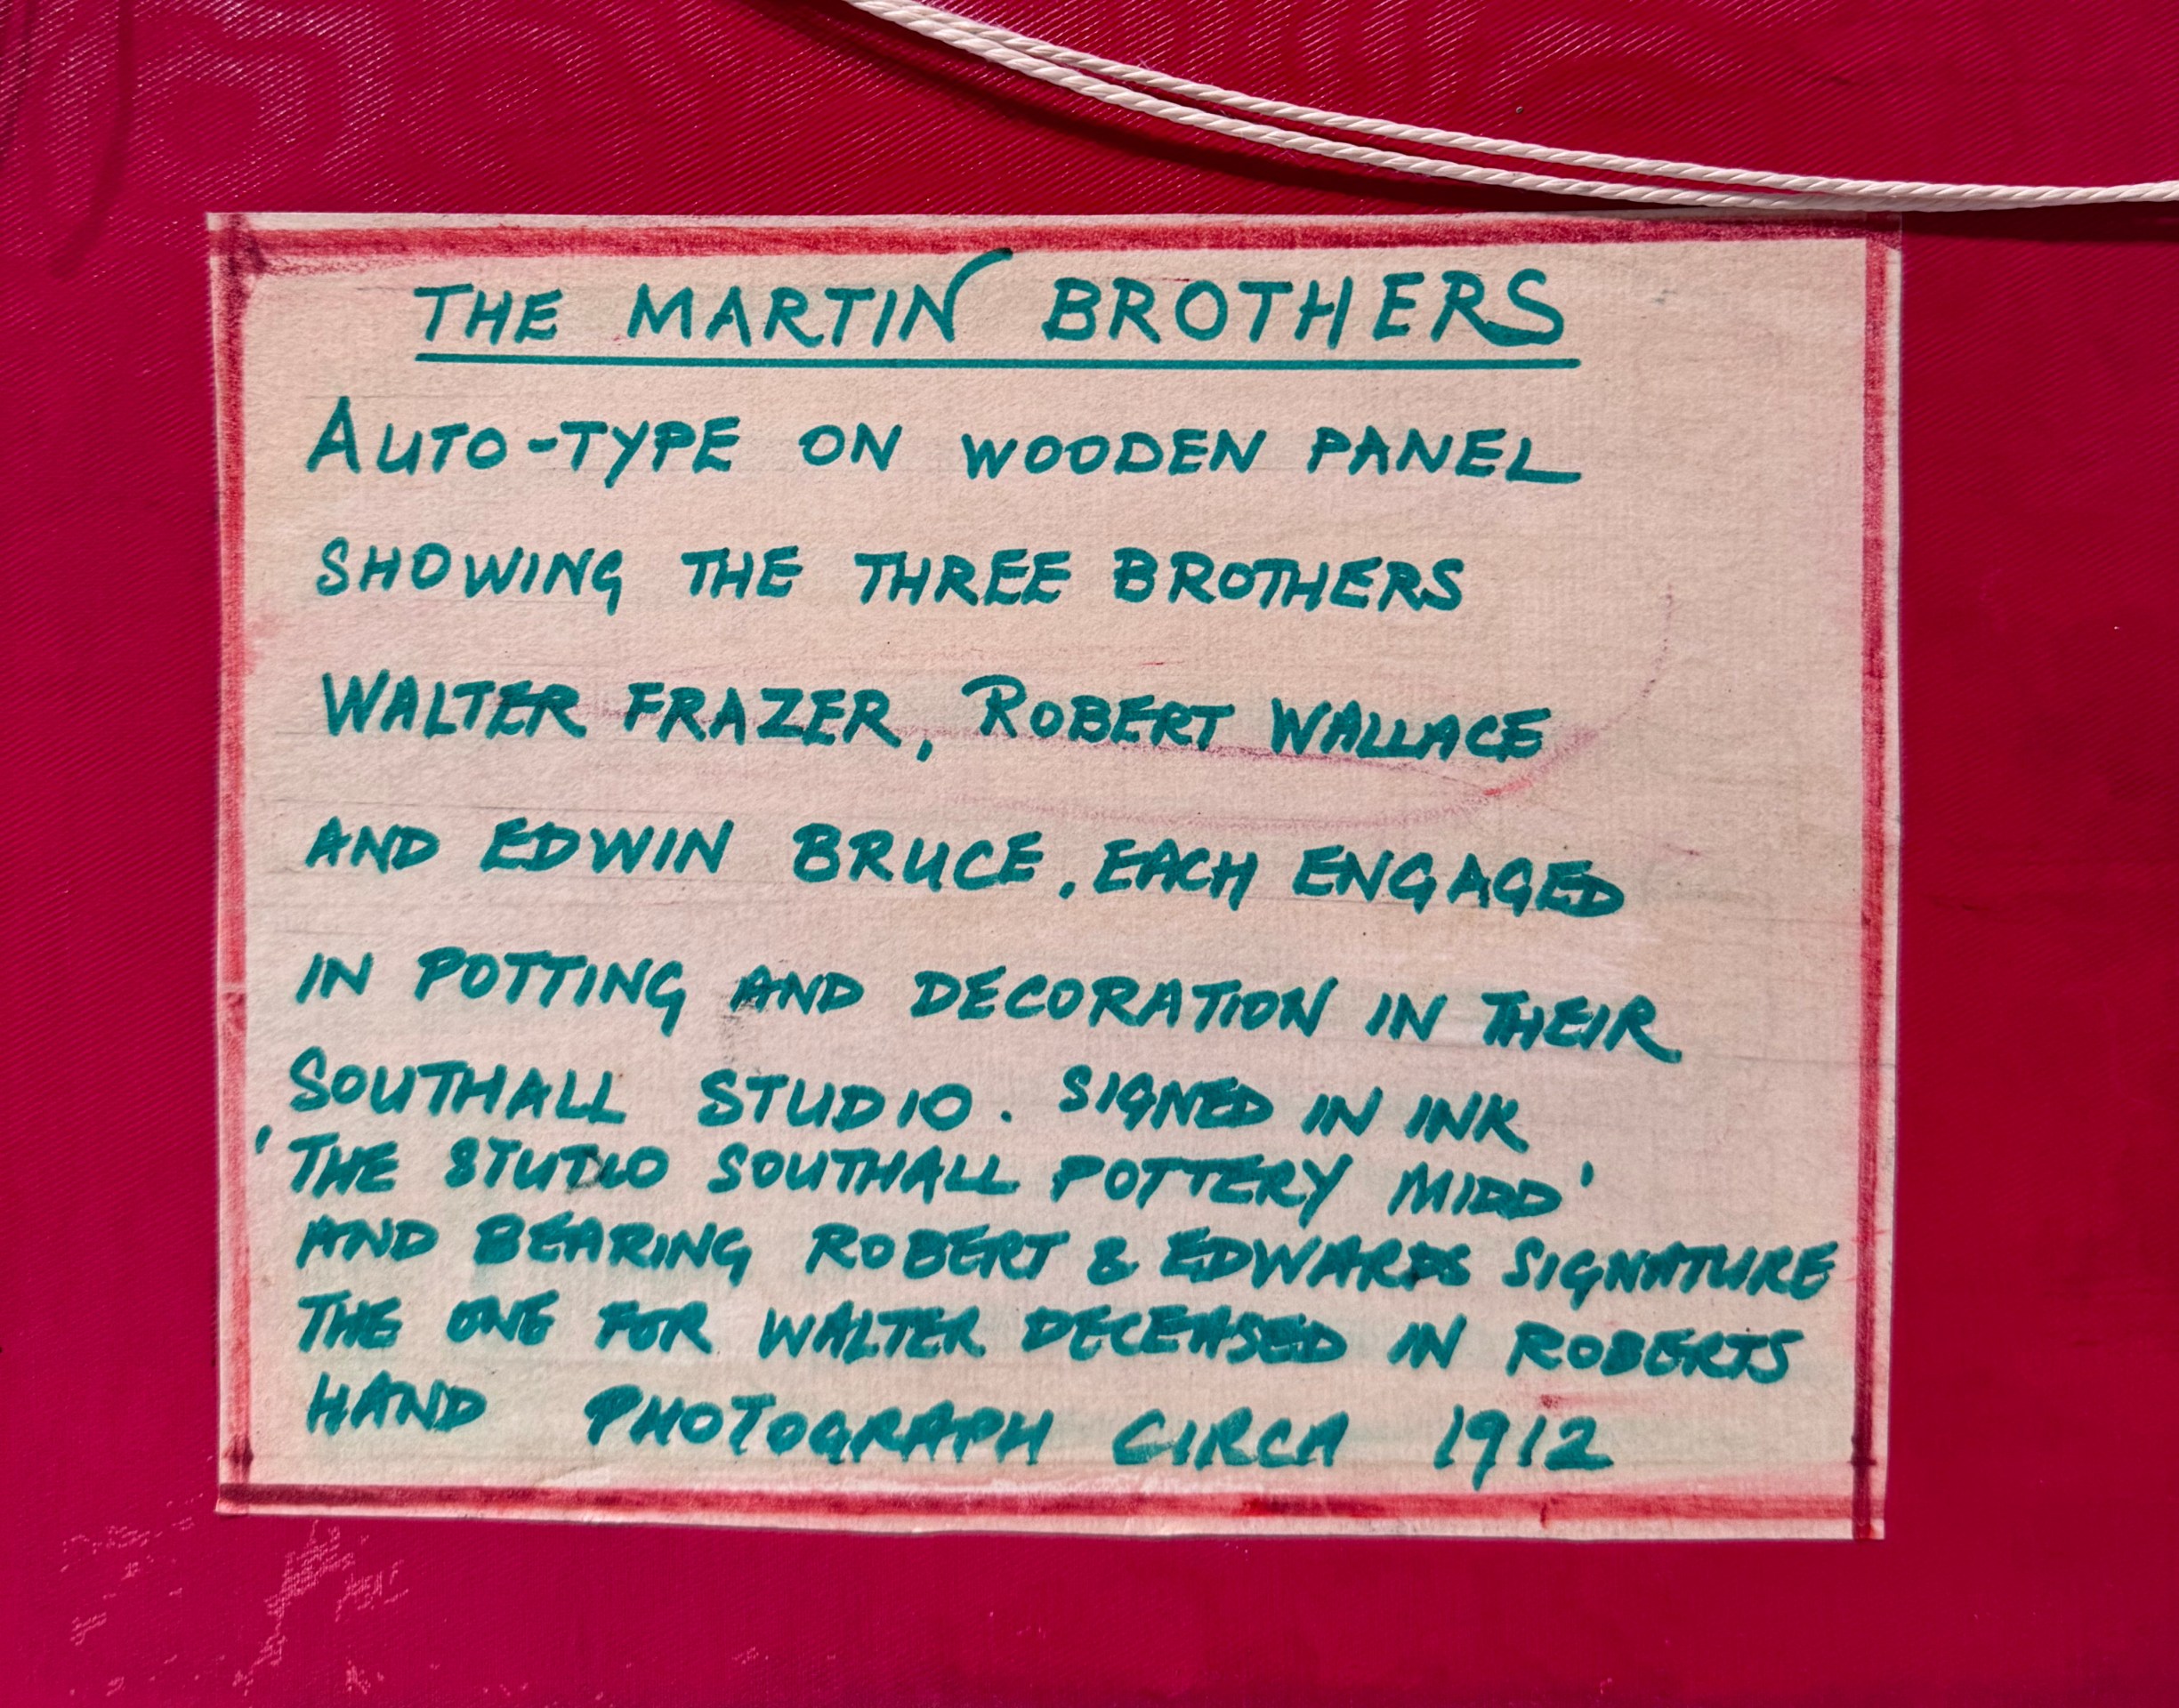 THE MARTIN BROTHERS
AUTO-TYPE ON WOODEN PANEL
SHOWING THE THREE BROTHERS
WALTER FRAZER, ROBERT WALLACE
AND EDWIN BRUCE, EACH ENGAGED
IN POTTING AND DECORATION IN THEIR
SOUTHALL STUDIO. SIGNED IN INK
'THE STUDIO SOUTHALL POTTERY MIDD'
AND BEARING ROBERT & EDWARDS SIGNATURE
THE ONE FOR WALTER DECEASED IN ROBERTS
HAND PHOTOGRAPH CIRCA 1912